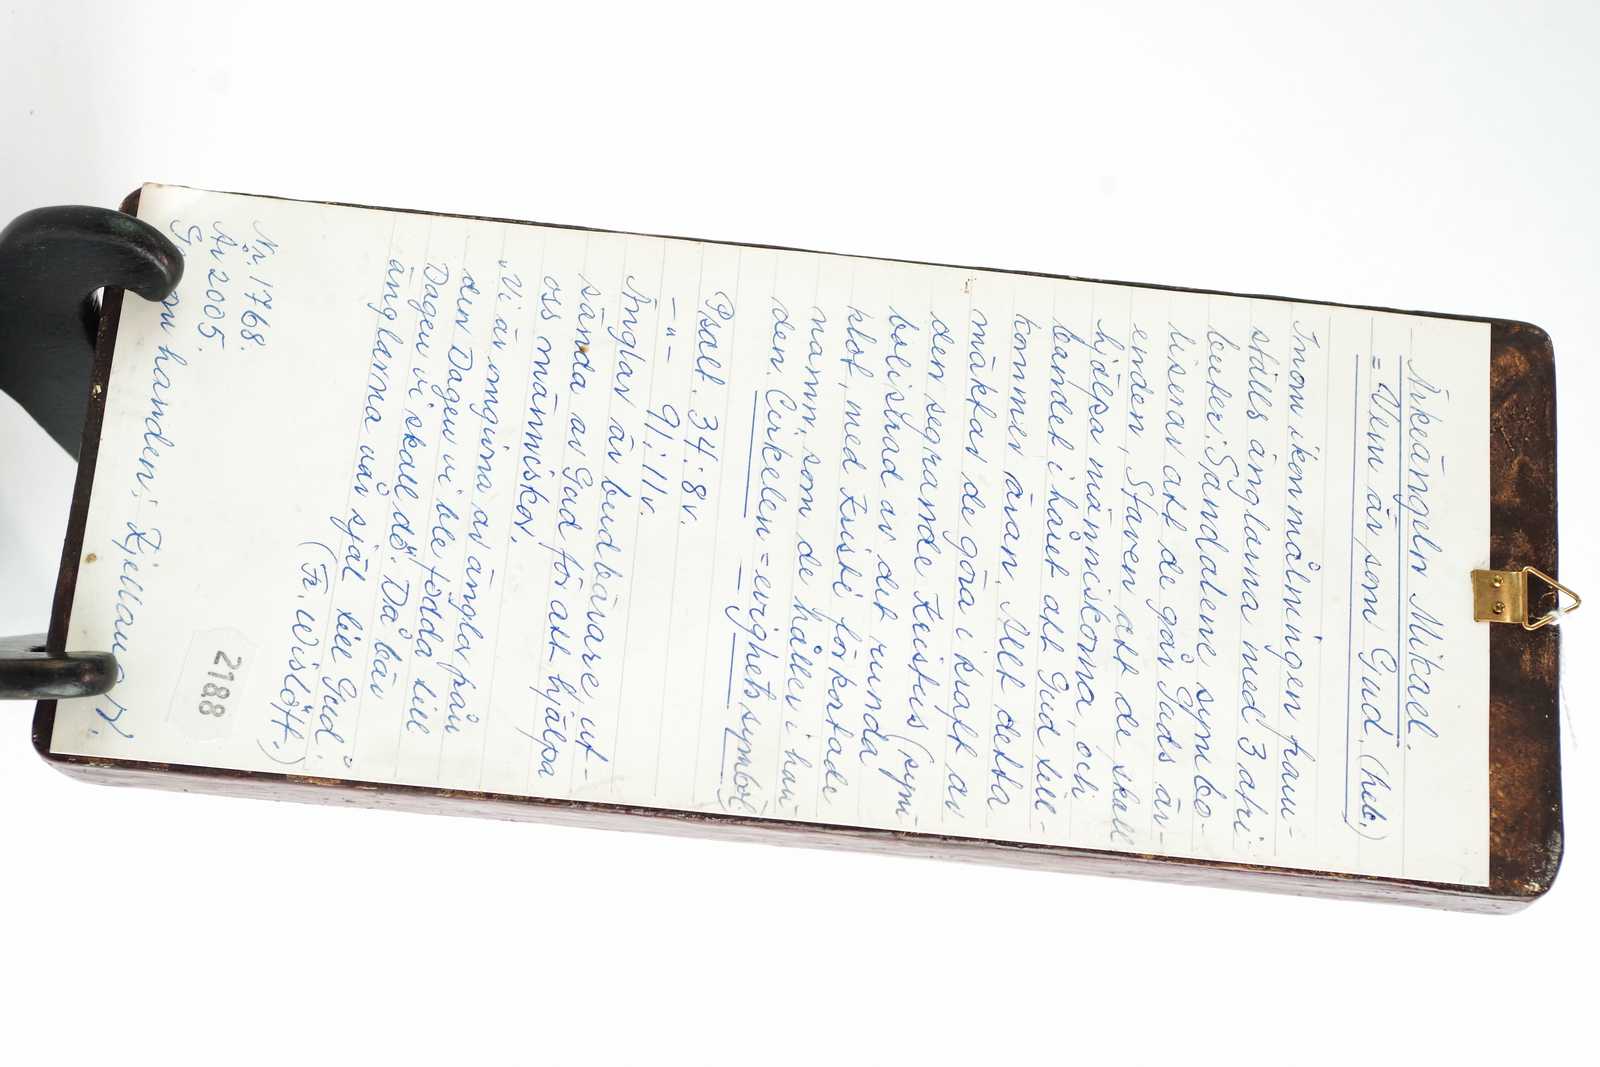 Ärkeängeln Mikael.
= Vem är som Gud. (heb.)
Inom ikonmålningen fram-
ställs änglarna med 3 attri-
buter: Sandalerna symbo-
liserar att de går Guds är-
enden, Staven att de skall
hjälpa människorna, och
bandet i håret att Gud till-
kommer äran. Allt detta
mäktar de göra i kraft av
den segrande Kristus (sym-
boliserad av det runda
klot, med Kristi förkortade
namn, som de håller i han-
den. Cirkelen = evighets symbol)
Psalt. 34:8 v.
–"– 91:11 v.
Änglar är budbärare, ut-
sända av Gud för att hjälpa
oss människor.
"Vi är omgivna av änglar från
den Dagen vi ble födda till
Dagen vi skall dö". Då bär
änglarna vår själ till Gud.
(Fr. Wisløff.)
Nr. 1768.
År 2005.
handen; Kjellaug
2188